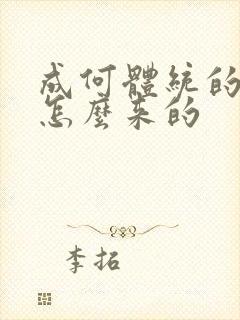 成何體統的
怎麼來的
李拓